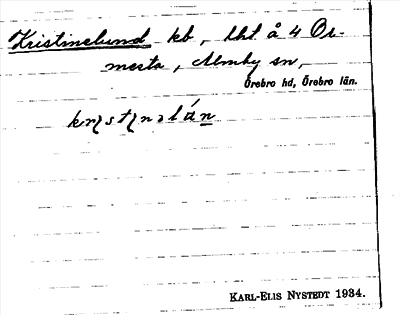 Kristinelund kb, lht å 4 Or-
mesta, Almby sn,
Örebro hd, Örebro län.
KARL-ELIS NYSTEDT 1934.